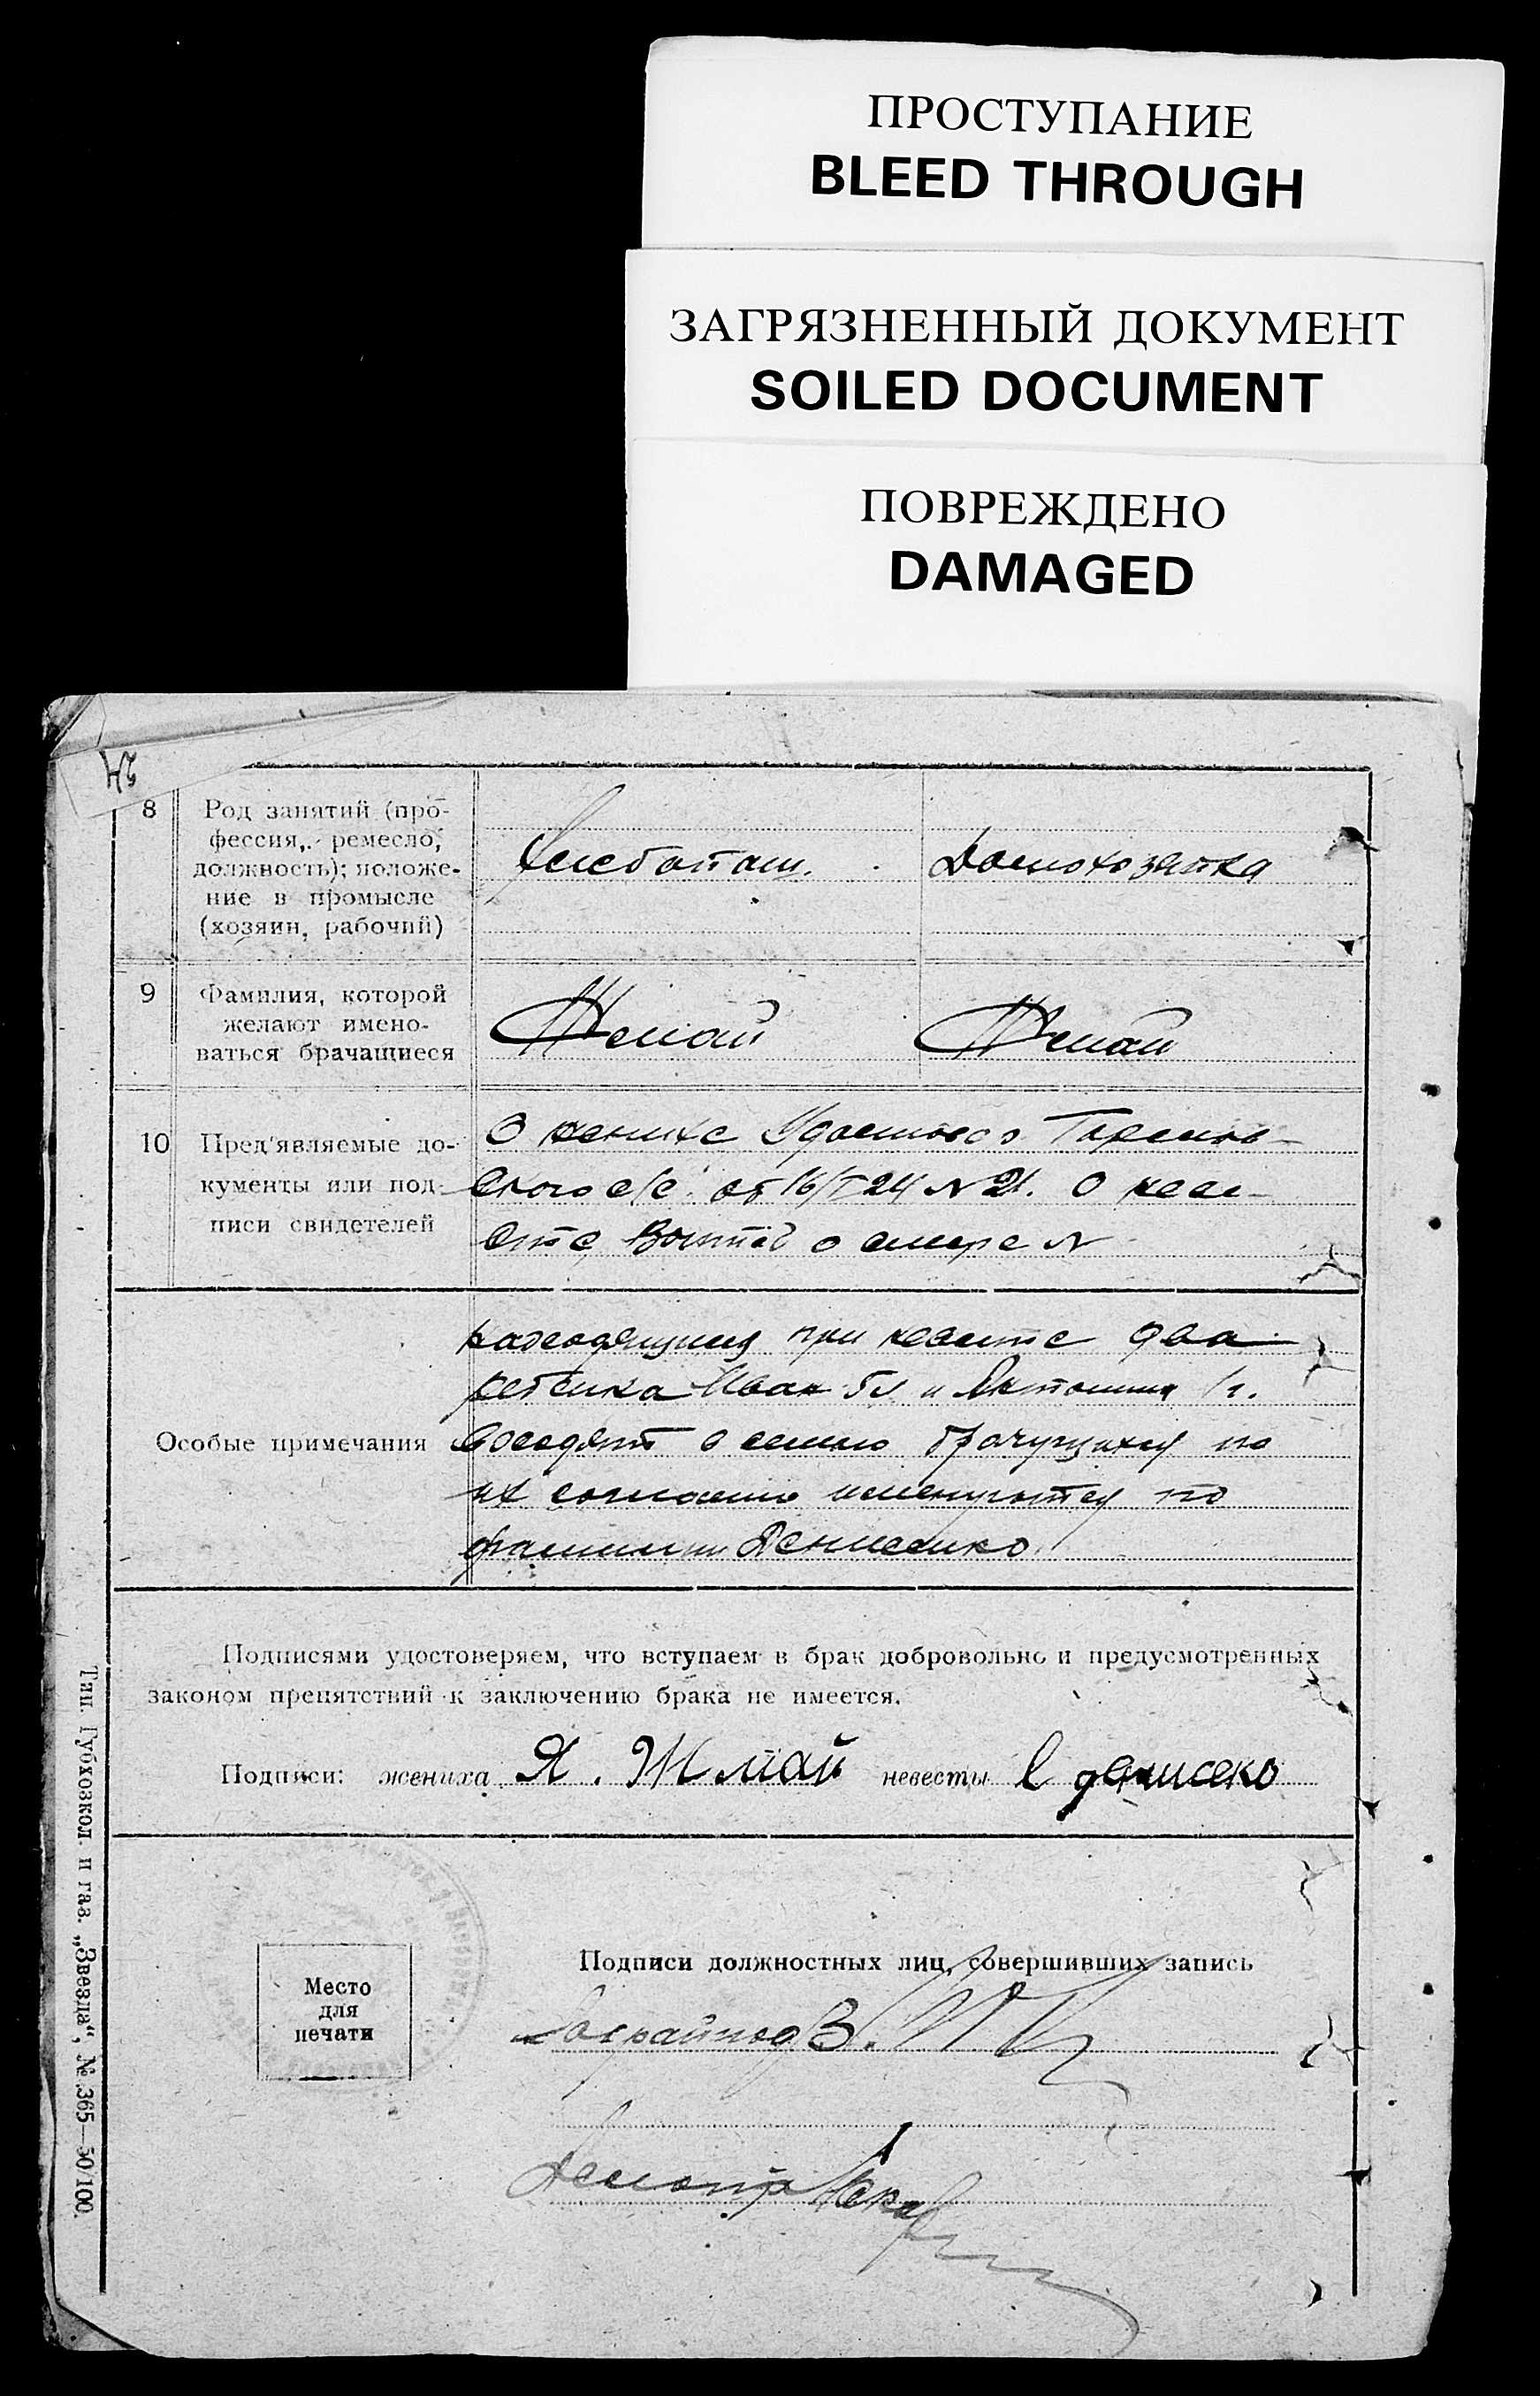 ПРОСТУПАНИЕ
BLEED THROUGH
ЗАГРЯЗНЕННЫЙ ДОКУМЕНТ
SOILED DOCUMENT
ПОВРЕЖДЕНО
DAMAGED
8
Род занятий (про-
фессия, ремесло,
должность); положе-
ние в промысле
(хозяин, рабочий)
Хлебопаш.
Домохозяйка
9
Фамилия, которой
желают имено-
ваться брачащиеся
Жмай
Жмай
10
Пред'являемые до-
кументы или под-
писи свидетелей
О женихе Удостов
ского с/с. от 16/I 24 № 21. О неве-
сте о смер №
Особые примечания
находящиеся при невесте два
ребенка Иван 5 л и Антонина 1 г.
в семью брачущихся по
их согласию именуются по
фамилии Денисенко
Подписями удостоверяем, что вступаем в брак добровольно и предусмотренных
законом препятствий к заключению брака не имеется.
Подписи: жениха Я. Жмай невесты денисеко
Место
для
печати
Подписи должностных лиц, совершивших запись
Тип. Губхозкол. и газ. „Звезда", № 365—50/100.